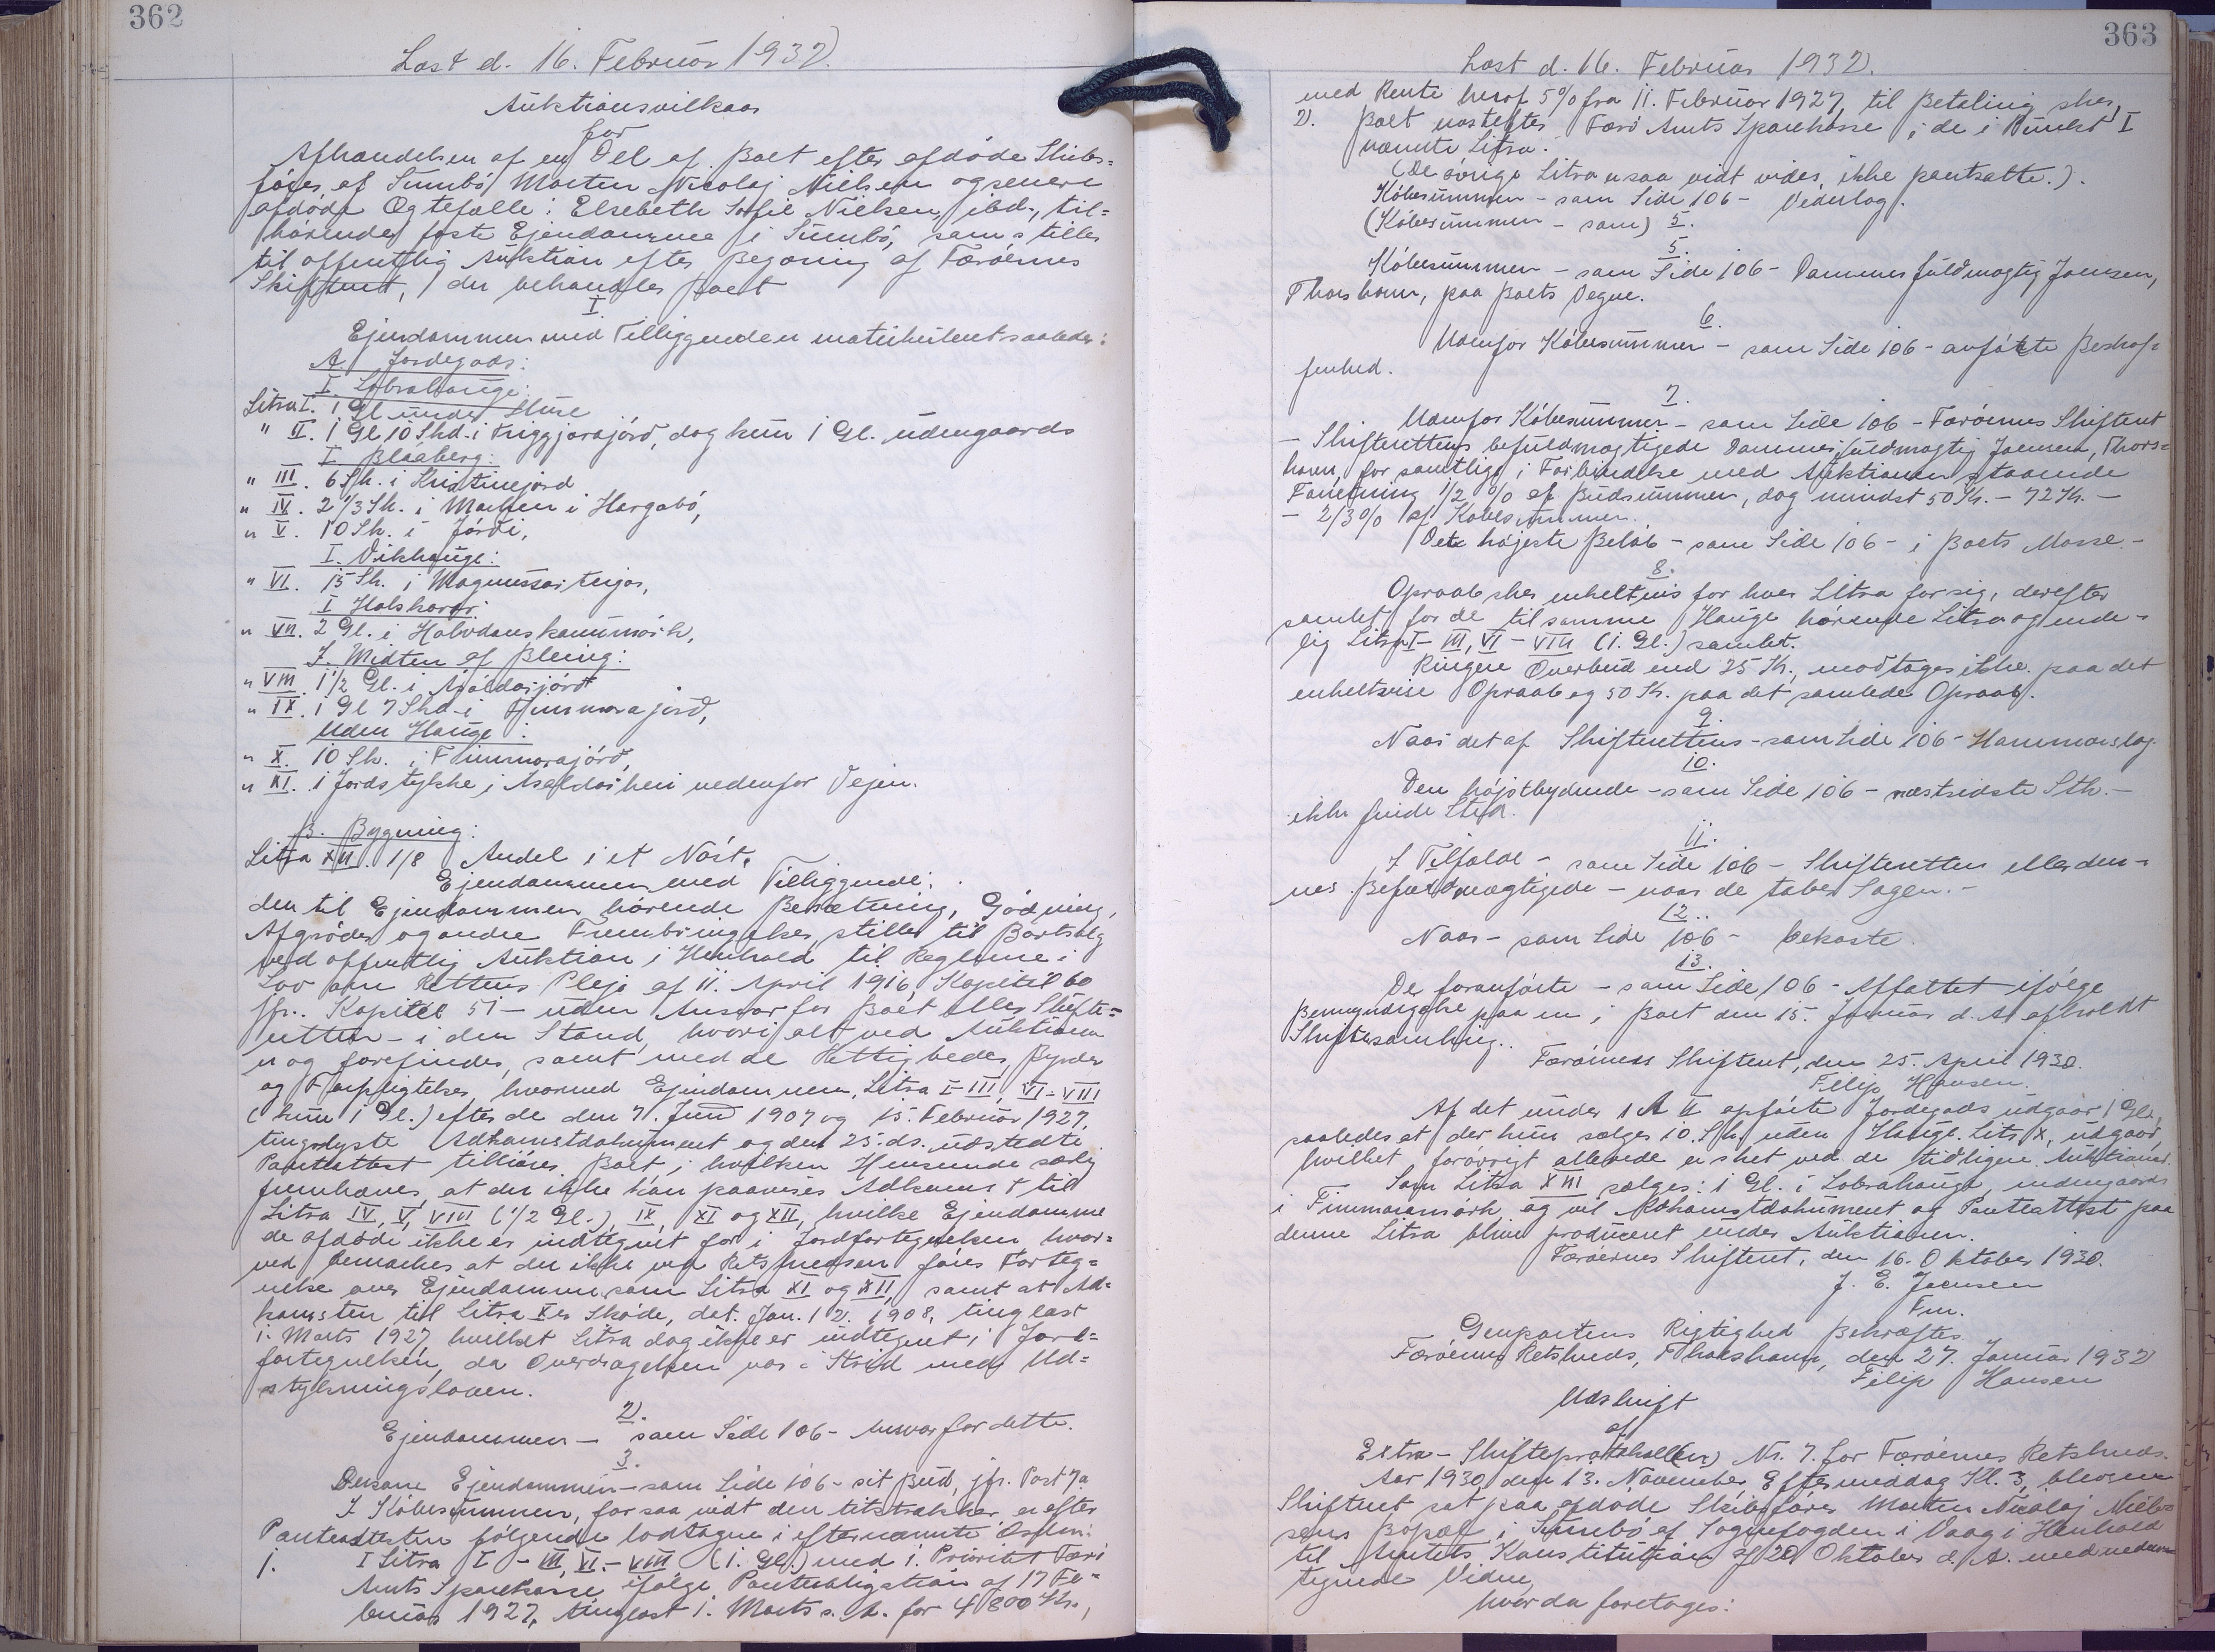 362
Læst d. 16. Februar 1932.
Auktionsvilkaar
for
Afhændelsen af en Del af Boet efter afdøde Skibs=
fører af Sumbø Morten Nicolaj Nielsen og senere
afdøde Ægtefælle: Elsebeth Sofie Nielsen, ibd., til=
hørende faste Ejendomme i Sumbø, som stilles
til offentlig Auktion efter Begæring af Færøernes
Skifteret, der behandler Boet
I
Ejendommen med Tilliggende er matrikuleret saaledes:
A. Jordegods:
I. Lobrahauge:
Litra I. 1 Gl under Huse
" II. 1 Gl 10 Skd. i Friggjarajørd, dog kun 1 Gl. udengaards
I. Blaaberg:
" III. 6 Sk. i Kristinejørd
" IV. 2 1/3 Sk. i Marken i Hørgabø,
" V. 10 Sk. i Jørdi,
I. Vikhauge:
" VI. 15 Sk. i Magnussarteigar,
I Halskorar:
" VII. 2 Gl. i Halvdanskaummørk,
I. Midten af Bleing:
" VIII. 1 1/2 Gl. i Asaldasjørd
" IX. 1 Gl 7 Skd. i Fimmarajørd,
Uden Hauge:
" X. 10 Sk. i Fimmarajørd,
" XI. 1 Jordstykke i Asaldasheri nedenfor Vejen.
B. Bygning:
Litra XII. 1/8 Andel i et Nøst.
Ejendommen med Tilliggende:
den til Ejendommen hørende Besætning, Gødning,
Afgrøder og andre Frembringelser stilles til Bortsalg
ved offentlig Auktion i Henhold til Reglerne i
Lov om Rettens Pleje af 11. April 1916, Kapitel 60
jfr. Kapitel 51 – uden Ansvar for Boet eller Skifte=
retten – i den Stand, hvori alt ved Auktionen
er og forefindes, samt med de Rettigheder, Byrder
og Forpligtelser, hvormed Ejendommen, Litra I-III, VI-VIII
(kun 1 Gl.) efter de den 7. Juni 1907 og 15. Februar 1927
tinglyste Adkomstdokument og den 25. ds. udstedte
Panteattest tilhører Boet, i hvilken Henseende særlig
fremhæves, at der ikke kan paavises Adkomst til
Litra IV, V, VIII (1/2 Gl.), IX, XI og XII, hvilke Ejendomme
de afdøde ikke er indtegnet for i Jordfortegnelsen, hvor=
ved bemærkes at der ikke ved Retsmessen føres Forteg=
nelse over Ejendomme som Litra XI og XII, samt at Ad=
komsten til Litra X er Skøde, dat. Jan. 12. 1908, tinglæst
1. Marts 1927, hvilket Litra dog ikke er indtegnet i Jord=
fortegnelsen, da Overdragelsen var i Strid med Ud=
stykningsloven.
2.
Ejendommen – som Side 106 – Ansvar for dette.
3.
Dersom Ejendommen – som Side 106 – sit Bud, jfr. Post 7a
I Købesummen, for saa vidt den tilstrækker, er efter
Panteattesten følgende lodtagne i efternævnte Orden:
1. I Litra I - III, VI - VIII (1. Gl.) med 1. Prioritet Færø
Amts Sparekasse ifølge Panteobligation af 17 Fe=
bruar 1927, tinglæst 1. Marts s. A. for 4800 Kr.,
363
Læst d. 16. Februar 1932.
med Rente heraf 5% fra 11. Februar 1927, til Betaling sker,
2. Boet næstefter Færø Amts Sparekasse i de i Punkt I
nævnte Litra.
(De øvrige Litra er saa vidt vides, ikke pantsatte.).
Købesummen – som Side 106 – Vederlag.
(Købesummen – som) 5.
5.
Købesummen – som Side 106 – Dommerfuldmægtig Joensen,
Thorshavn, paa Boets Vegne.
6.
Udenfor Købesummen – som Side 106 – anførte Beskaf=
fenhed.
7.
Udenfor Købesummen – som Side 106 – Færøernes Skifteret
– Skifterettens befuldmægtigede Dommerfuldmægtig Joensen, Thors=
havn, for samtlige i Forbindelse med Auktionen staaende
Forretning 1/2 % af Budsummen, dog mindst 50 Kr. – 72 Kr. –
– 2/3% af Købesummen.
Det højeste Beløb – som Side 106 – i Boets Masse. –
8.
Opraab sker enkeltvis for hver Litra for sig, derefter
samlet for de til samme Hauge hørende Litra og ende=
lig Litra I - III, VI - VIII (1. Gl.) samlet.
Ringere Overbud end 25 Kr., modtages ikke paa det
enkeltvise Opraab og 50 Kr. paa det samlede Opraab.
9.
Naar det af Skifterettens – som Side 106 – Hammerslag.
10.
Den højstbydende – som Side 106 – næstsidste Stk. –
ikke finde Sted.
11.
I Tilfælde – som Side 106 – Skifteretten eller den=
nes Befuldmægtigede – naar de taber Sagen. –
12.
Naar – som Side 106 – bekoste.
13.
De foranførte – som Side 106 – Affattet ifølge
Bemyndigelse paa en i Boet den 15. Januar d. A. afholdt
Skiftesamling.
Færøernes Skifteret, den 25. April 1930.
Filip Hansen.
Af det under 1 A II opførte Jordegods udgaar 1 Gl.,
saaledes at der kun sælges 10 Sk. uden Hauge. Litr. X, udgaar,
hvilket forøvrigt allerede er sket ved de tidligere Auktioner.
Som Litra XIII sælges: 1 Gl. i Lobrahauge, indengaards
i Fimmaramørk, og vil Adkomstdokument og Panteattest paa
denne Litra blive produceret under Auktionen.
Færøernes Skifteret, den 16. Oktober 1930.
J. E. Joensen
Fm.
Genpartens Rigtighed Bekræftes
Færøernes Retskreds, Thorshavn, den 27. Januar 1932
Filip Hansen
Udskrift
af
Extra – Skifteprotokollen Nr. 7. for Færøernes Retskreds.
Aar 1930, den 13. November, Eftermiddag Kl. 3, blev en
Skifteret sat paa afdøde Skibsfører Morten Nicolaj Niel=
sens Bopæl i Sumbø af Sognefogden i Vaag i Henhold
til Amtets Konstitution af 20 Oktober d. A. med under
tegnede Vidner,
hvor da foretoges: